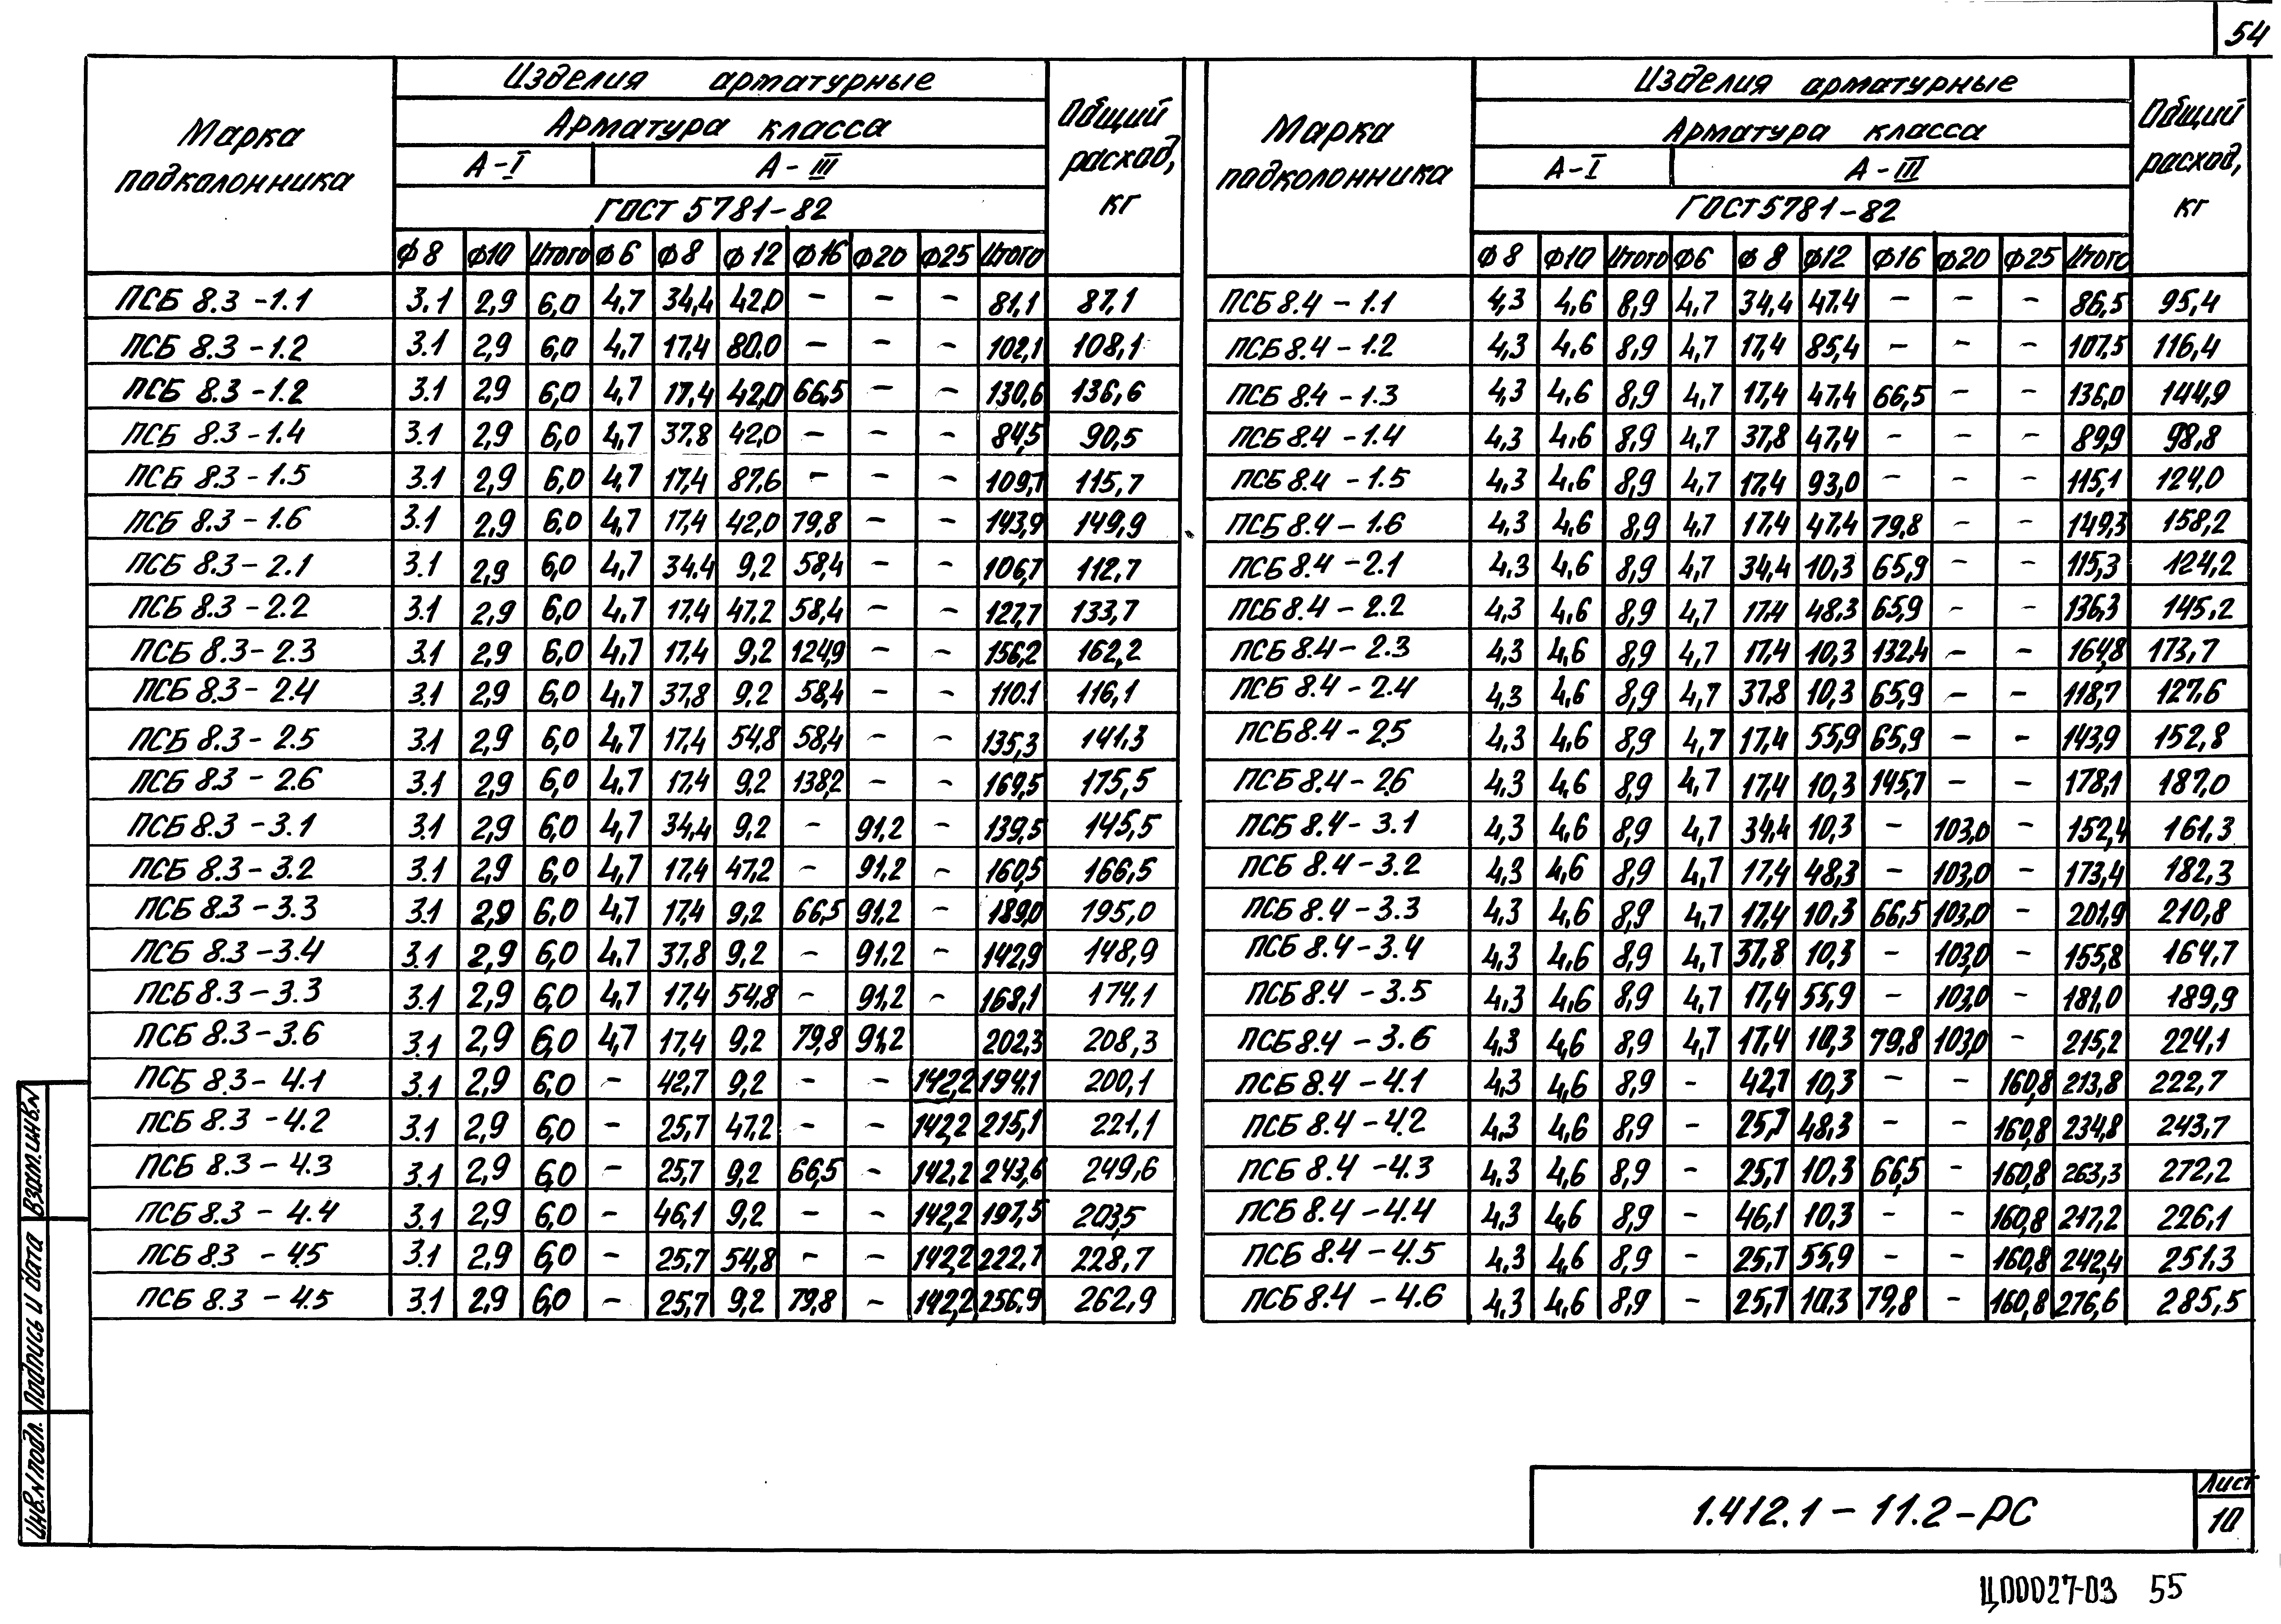 54
Марка подколонника
Изделия арматурные
Арматура класса
А-I А-III
ГОСТ 5781-82
Общий расход, кг
ф8 ф10 Итого ф6 ф8 ф12 ф16 ф20 ф25 Итого
ПСБ 8.3-1.1 3.1 2,9 6,0 4,7 34,4 42,0 - - - 81,1 87,1
ПСБ 8.3-1.2 3.1 2,9 6,0 4,7 17,4 80,0 - - - 102,1 108,1
ПСБ 8.3-1.2 3.1 2,9 6,0 4,7 17,4 42,0 66,5 - - 130,6 136,6
ПСБ 8.3-1.4 3.1 2,9 6,0 4,7 37,8 42,0 - - - 84,5 90,5
ПСБ 8.3-1.5 3.1 2,9 6,0 4,7 17,4 87,6 - - - 109,7 115,7
ПСБ 8.3-1.6 3.1 2,9 6,0 4,7 17,4 42,0 79,8 - - 143,9 149,9
ПСБ 8.3-2.1 3.1 2,9 6,0 4,7 34,4 9,2 58,4 - - 106,7 112,7
ПСБ 8.3-2.2 3.1 2,9 6,0 4,7 17,4 47,2 58,4 - - 127,7 133,7
ПСБ 8.3-2.3 3.1 2,9 6,0 4,7 17,4 9,2 124,9 - - 156,2 162,2
ПСБ 8.3-2.4 3.1 2,9 6,0 4,7 37,8 9,2 58,4 - - 110.1 116,1
ПСБ 8.3-2.5 3.1 2,9 6,0 4,7 17,4 54,8 58,4 - - 135,3 141.3
ПСБ 8.3-2.6 3.1 2,9 6,0 4,7 17,4 9,2 138,2 - - 169,5 175,5
ПСБ 8.3-3.1 3.1 2,9 6,0 4,7 34,4 9,2 - 91,2 - 139,5 145,5
ПСБ 8.3-3.2 3.1 2,9 6,0 4,7 17,4 47,2 - 91,2 - 160,5 166,5
ПСБ 8.3-3.3 3.1 2,9 6,0 4,7 17,4 9,2 66,5 91,2 - 189,0 195,0
ПСБ 8.3-3.4 3.1 2,9 6,0 4,7 37,8 9,2 - 91,2 - 142,9 148,9
ПСБ 8.3-3.3 3.1 2,9 6,0 4,7 17,4 54,8 - 91,2 - 168,1 174,1
ПСБ 8.3-3.6 3.1 2,9 6,0 4,7 17,4 9,2 79,8 91,2 202,3 208,3
ПСБ 8.3-4.1 3.1 2,9 6,0 - 42,7 9,2 - - 142,2 194,1 200,1
ПСБ 8.3-4.2 3.1 2,9 6,0 - 25,7 47,2 - - 142,2 215,1 221,1
ПСБ 8.3-4.3 3.1 2,9 6,0 - 25,7 9,2 66,5 - 142,2 243,6 249,6
ПСБ 8.3-4.4 3.1 2,9 6,0 - 46,1 9,2 - - 142,2 197,5 203,5
ПСБ 8.3-4.5 3.1 2,9 6,0 - 25,7 54,8 - - 142,2 222,7 228,7
ПСБ 8.3-4.5 3.1 2,9 6,0 - 25,7 9,2 79,8 - 142,2 256,9 262,9
Марка подколонника
Изделия арматурные
Арматура класса
А-I А-III
ГОСТ 5781-82
Общий расход, кг
ф8 ф10 Итого ф6 ф8 ф12 ф16 ф20 ф25 Итого
ПСБ 8.4-1.1 4,3 4,6 8,9 4,7 34,4 47,4 - - - 86,5 95,4
ПСБ 8.4-1.2 4,3 4,6 8,9 4,7 17,4 85,4 - - - 107,5 116,4
ПСБ 8.4-1.3 4,3 4,6 8,9 4,7 17,4 47,4 66,5 - - 136,0 144,9
ПСБ 8.4-1.4 4,3 4,6 8,9 4,7 37,8 47,4 - - - 89,9 98,8
ПСБ 8.4-1.5 4,3 4,6 8,9 4,7 17,4 93,0 - - - 115,1 124,0
ПСБ 8.4-1.6 4,3 4,6 8,9 4,7 17,4 47,4 79,8 - - 149,3 158,2
ПСБ 8.4-2.1 4,3 4,6 8,9 4,7 34,4 10,3 65,9 - - 115,3 124,2
ПСБ 8.4-2.2 4,3 4,6 8,9 4,7 17,4 48,3 65,9 - - 136,3 145,2
ПСБ 8.4-2.3 4,3 4,6 8,9 4,7 17,4 10,3 132,4 - - 164,8 173,7
ПСБ 8.4-2.4 4,3 4,6 8,9 4,7 37,8 10,3 65,9 - - 118,7 127,6
ПСБ 8.4-2.5 4,3 4,6 8,9 4,7 17,4 55,9 65,9 - - 143,9 152,8
ПСБ 8.4-2.6 4,3 4,6 8,9 4,7 17,4 10,3 145,7 - - 178,1 187,0
ПСБ 8.4-3.1 4,3 4,6 8,9 4,7 34,4 10,3 - 103,0 - 152,4 161,3
ПСБ 8.4-3.2 4,3 4,6 8,9 4,7 17,4 48,3 - 103,0 - 173,4 182,3
ПСБ 8.4-3.3 4,3 4,6 8,9 4,7 17,4 10,3 66,5 103,0 - 201,9 210,8
ПСБ 8.4-3.4 4,3 4,6 8,9 4,7 37,8 10,3 - 103,0 - 155,8 164,7
ПСБ 8.4-3.5 4,3 4,6 8,9 4,7 17,4 55,9 - 103,0 - 181,0 189,9
ПСБ 8.4-3.6 4,3 4,6 8,9 4,7 17,4 10,3 79,8 103,0 - 215,2 224,1
ПСБ 8.4-4.1 4,3 4,6 8,9 - 42,7 10,3 - - 160,8 213,8 222,7
ПСБ 8.4-4.2 4,3 4,6 8,9 - 25,7 48,3 - - 160,8 234,8 243,7
ПСБ 8.4-4.3 4,3 4,6 8,9 - 25,7 10,3 66,5 - 160,8 263,3 272,2
ПСБ 8.4-4.4 4,3 4,6 8,9 - 46,1 10,3 - - 160,8 217,2 226,1
ПСБ 8.4-4.5 4,3 4,6 8,9 - 25,7 55,9 - - 160,8 242,4 251,3
ПСБ 8.4-4.6 4,3 4,6 8,9 - 25,7 10,3 79,8 - 160,8 276,6 285,5
Взам.инв.N
Подпись и дата
Инв.N подл.
1.412.1-11.2-РС
Лист
10
Ц00027-03 55